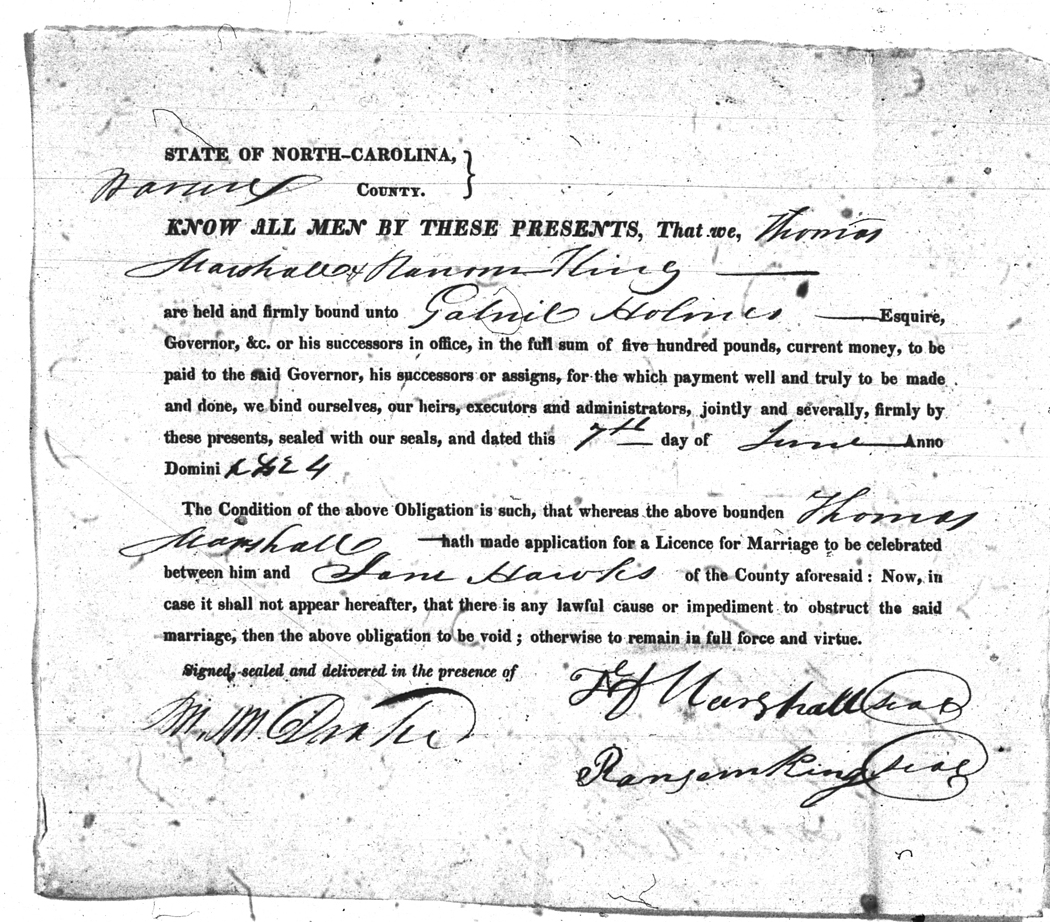 STATE OF NORTH-CAROLINA, }
Warren COUNTY.
KNOW ALL MEN BY THESE PRESENTS, That we, Thomas
Marshall & Ransom King
are held and firmly bound unto Gabriel Holmes Esquire,
Governor, &c. or his successors in office, in the full sum of five hundred pounds, current money, to be
paid to the said Governor, his successors or assigns, for the which payment well and truly to be made
and done, we bind ourselves, our heirs, executors and administrators, jointly and severally, firmly by
these presents, sealed with our seals, and dated this 7th day of June Anno
Domini 1824
The Condition of the above Obligation is such, that whereas the above bounden Thomas
Marshall hath made application for a Licence for Marriage to be celebrated
between him and Jane Hawks of the County aforesaid: Now, in
case it shall not appear hereafter, that there is any lawful cause or impediment to obstruct the said
marriage, then the above obligation to be void; otherwise to remain in full force and virtue.
Signed, sealed and delivered in the presence of
Marshall seal
M. M. Drake
Ransom King seal